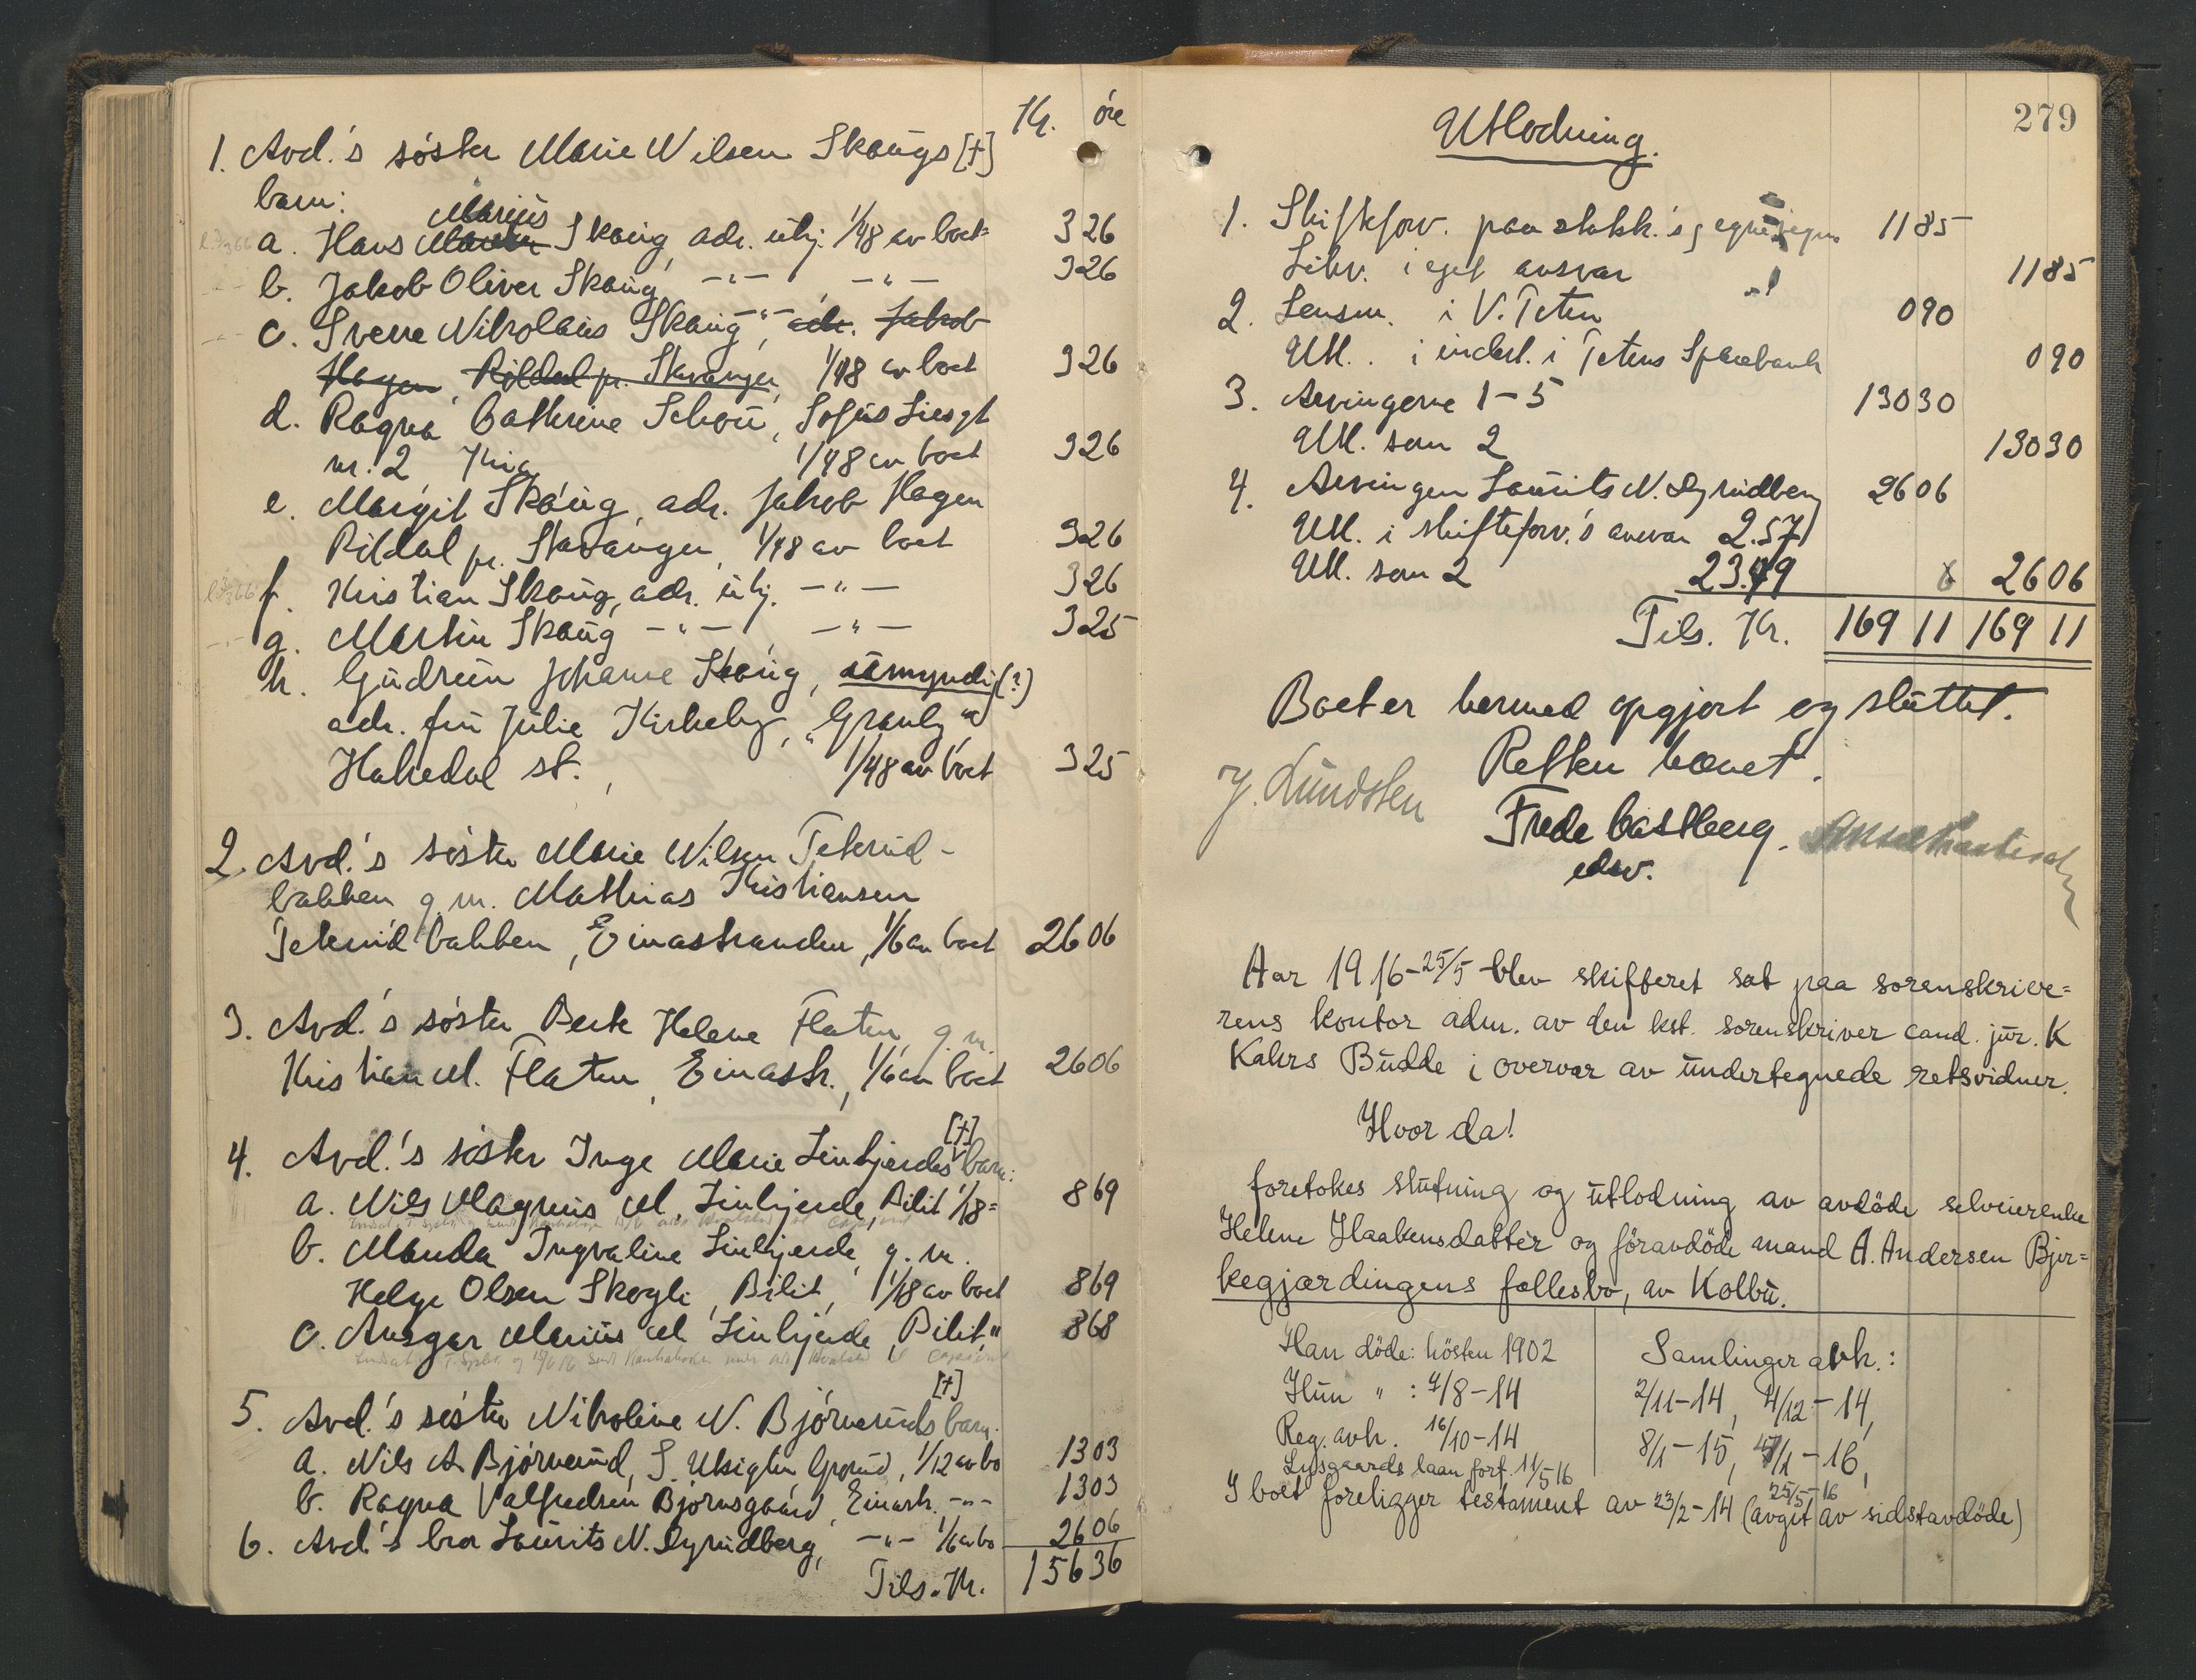 Kr. öre
1. Avd.'s söster Marie Nilsen Skaugs [†]
barn:
Marius
a. Hans Skaug, adr. ubj. 1/48 av boet= 3 26
b. Jakob Oliver Skaug, —"— , —"— 3 26
c. Sverre Nikolaus Skaug, —"— adr. Jakob
Hagen, Rildal pr. Stavanger, 1/48 av boet 3 26
d. Ragna Cathrine Schou, Sofus Liesgt
nr. 2 Kria 1/48 av boet 3 26
e. Margit Skaug, adr. Jakob Hagen
Rildal pr. Stavanger, 1/48 av boet 3 26
f. Kristian Skaug, adr. ubj. —"— 3 26
g. Martin Skaug —"— , —"— 3 25
h. Gudrun Johanne Skaug, umyndig (?)
adr. fru Julie Kirkeby, "Granly"
Hakedal st., 1/48 av boet 3 25
2. Avd.'s söster Marie Nilsen Teterud-
bakken g.m. Mathias Kristiansen
Teterudbakken, Einastranden, 1/6 av boet 26 06
3. Avd.'s söster Berte Helene Flaten, g.m.
Kristian M. Flaten, Einastr., 1/6 av boet 26 06
[†]
4. Avd.'s söster Inge Marie Linhjerdes barn:
a. Nils Magnus M. Linhjerde, Bilit 1/18= 8 69
b. Manda Ingvaline Linhjerde, g.m.
Helge Olsen Skogli, Bilit, 1/18 av boet 8 69
c. Ansgar Marius M Linhjerde, Bilit, " 8 68
[†]
5. Avd.'s söster Nikoline N. Björneruds barn.
a. Nils A. Björnerud, S. Grönd, 1/12 av bo 13 03
b. Ragna Valfredsen Björnsgaard, Einastr. —"— 13 03
6. Avd's bror Laurits N. Dyrudberg, —"— 1/6 av bo 26 06
Tils. Kr. 156 36
279
Utlodning.
1. Skifteforv. paa stskk.'s 11 85
Likv. i eget ansvar 11 85
2. Lensm. i V. Toten 0 90
Utl. i indest. i Totens Sparebank 0 90
3. Arvingerne 1-5 130 30
Utl. som 2 130 30
4. Arvingen Laurits N. Dyrudberg 26 06
Utl. i skifteforv.'s ansvar 2.57
Utl. som 2 23.49 26 06
Tils. Kr. 169 11 169 11
Boet er hermed opgjort og sluttet.
Retten hævet.
J. Lundsten
Frede Castberg.
edsv.
Aar 1916-25/5 blev skifteret sat paa sorenskrive=
rens kontor adm. av den kst. sorenskriver cand. jur. K
Kahrs Budde i overvær av undertegnede retsvidner.
Hvor da!
foretokes slutning og utlodning av avdöde selveierenke
Helene Haakensdatter og föravdöde mand A. Andersen Bjer=
kegjærdingens fællesbo, av Kolbu.
Han döde: hösten 1902
Hun " : 4/8-14
Reg. avh. 16/10-14
Lysgaards laan forf. 11/5 16
Samlinger avh.:
2/11-14, 4/12-14,
8/1-15, 4/1-16,
25/5-16
I boet foreligger testament av 23/2-14 (avgit av sidstavdöde)